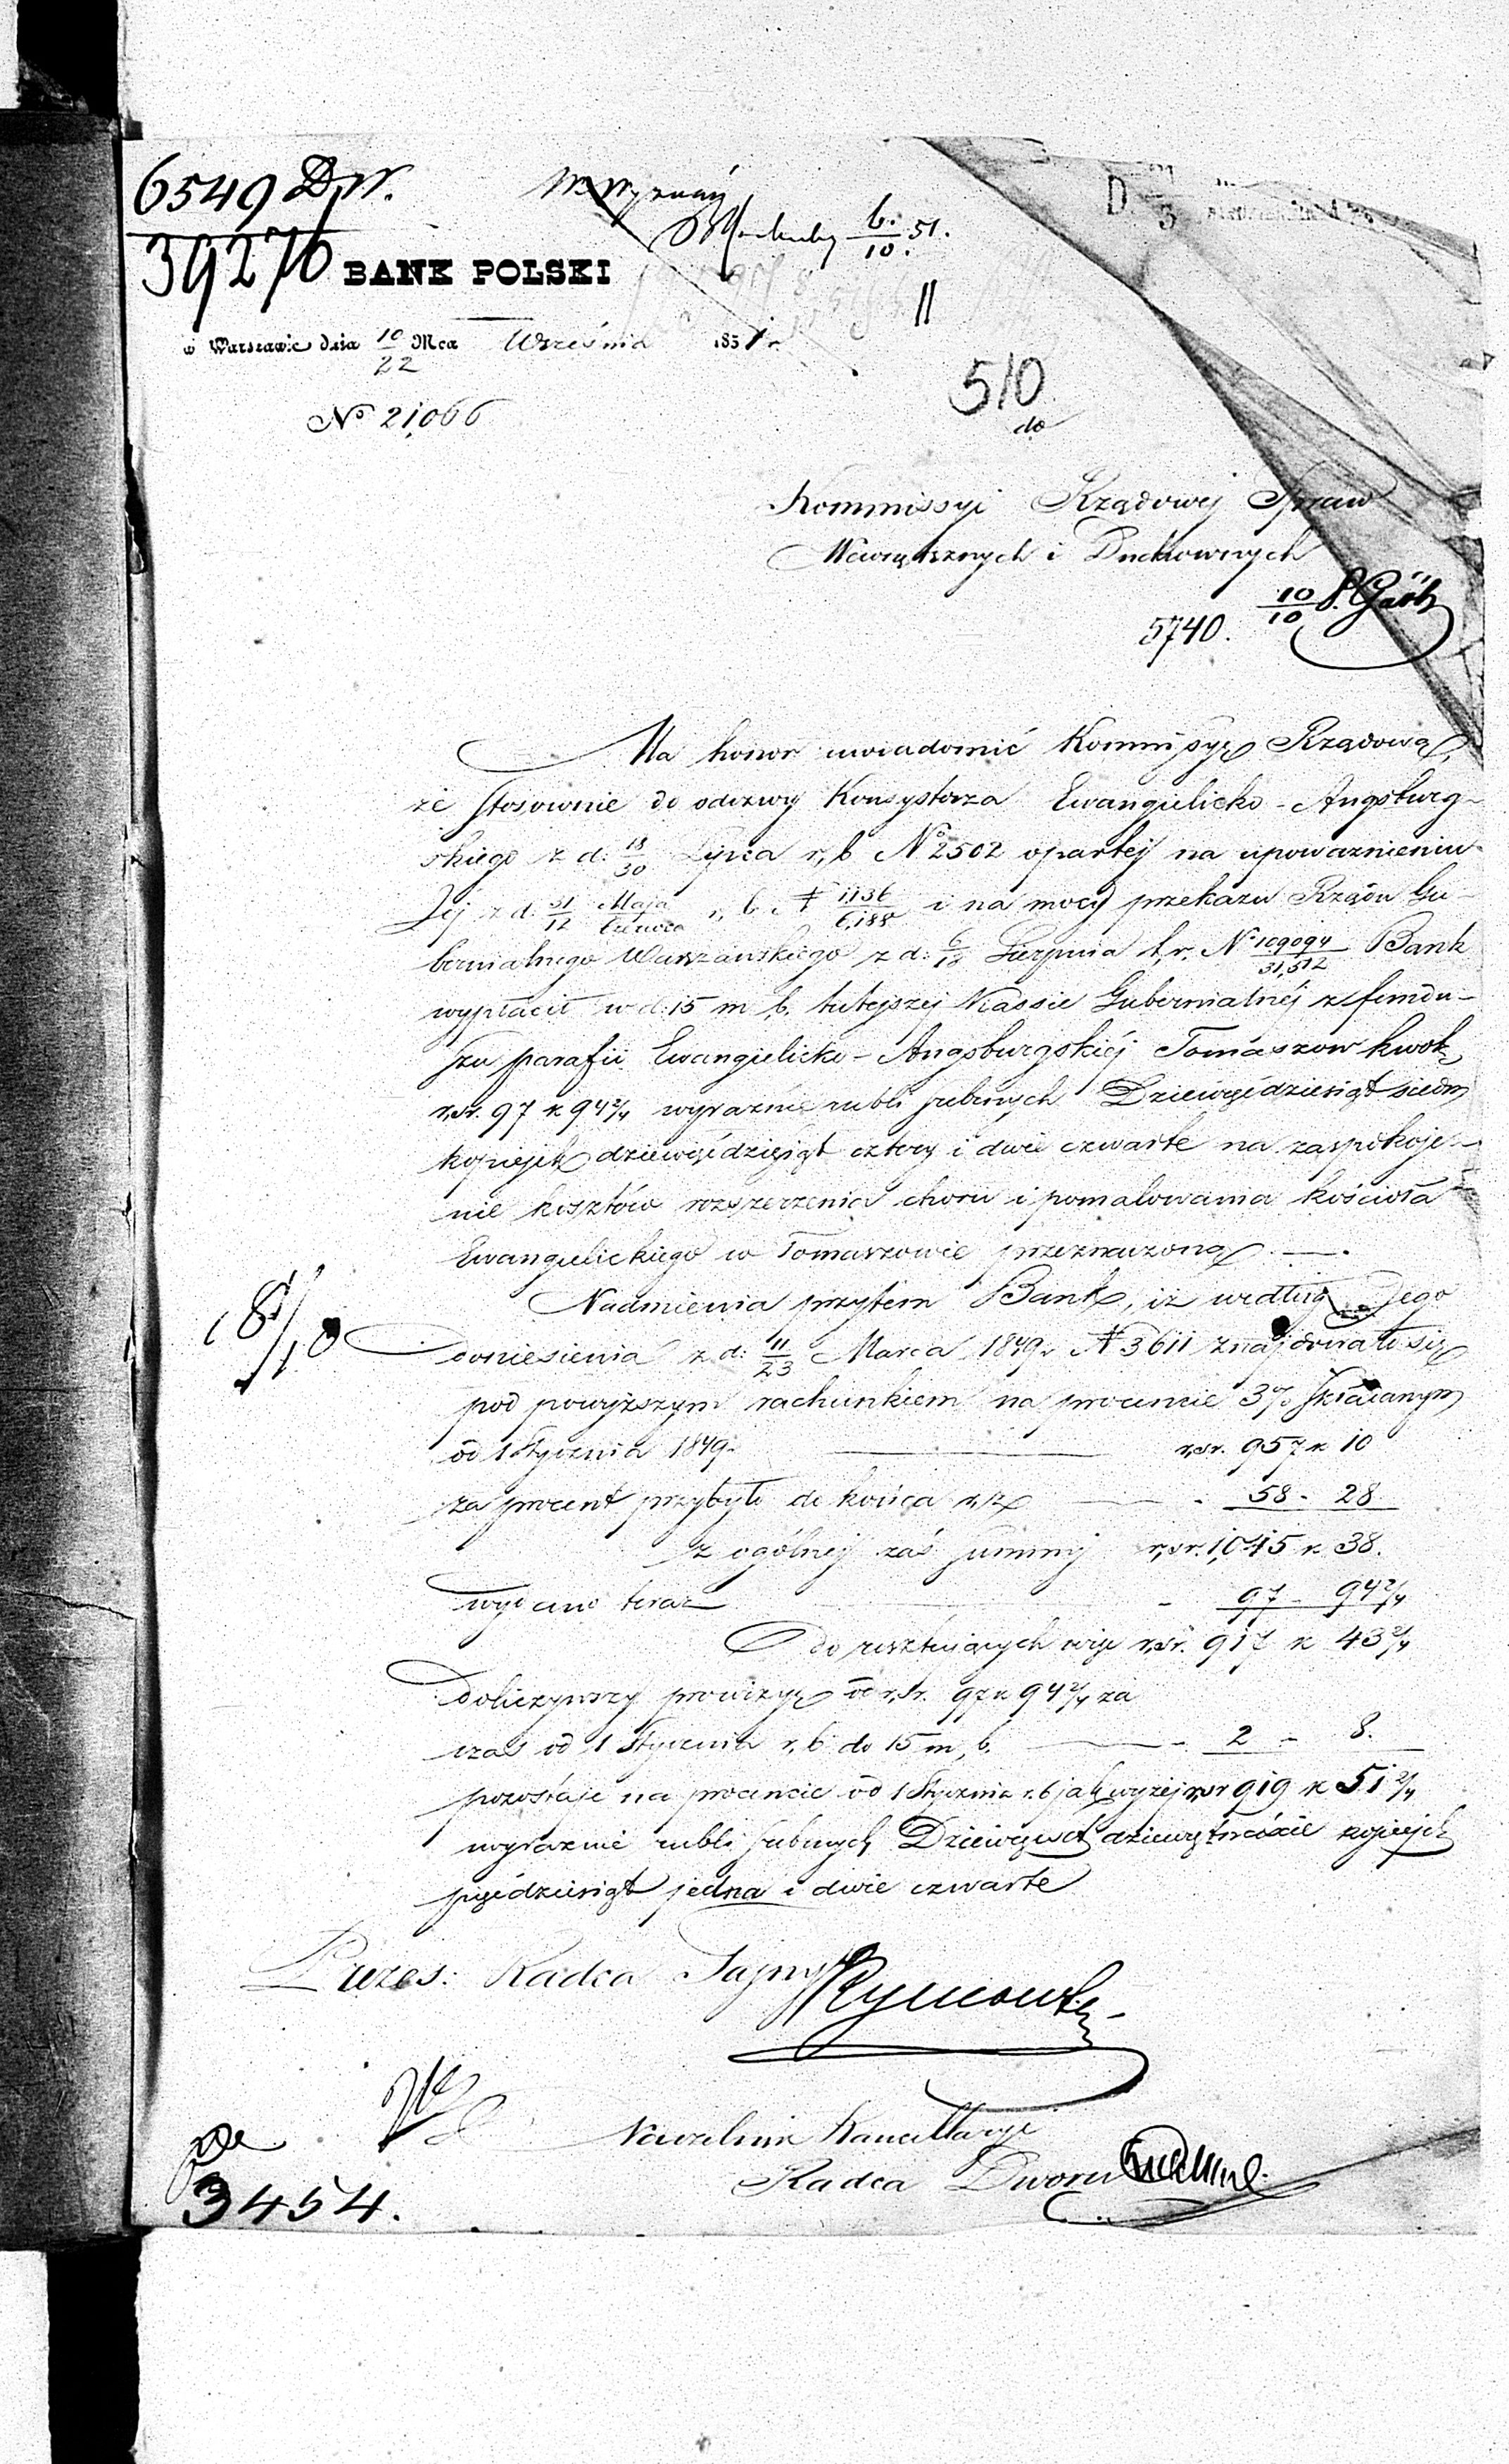 6549 D.W.
39276
BANK POLSKI
6/10 51.
w Warszawie dnia 10/22 Mca Września 1851 r.
11
510
№ 21,066
do
Kommissyi Rządowej Spraw
Wewnętrznych i Duchownych
10/10
5740.
Ma honor uwiadomić Kommissyę Rządową,
że stosownie do odezwy Konsystorza Ewangielicko-Augsburg-
skiego z d. 18/30 Lipca r, b № 2502 opartej na upoważnieniu
Jej z d. 31/12 Maja/Czerwca r, b. № 1136/6,188 i na mocy przekazu Rządu Gu-
bernialnego Warszawskiego z d: 6/18 Sierpnia t, r. № 109094/31,512 Bank
wypłacił w d. 15 m, b. tutejszej Kassie Gubernialnéj z fundu-
szu parafii Ewangielicko-Augsburgskiéj Tomaszow kwotę
r,sr. 97 k 94 2/4 wyraźnie rubli srebnych Dziewięćdziesiąt siedm
kopiejek dziewięćdziesiąt cztery i dwie czwarte na zaspokoje-
nie kosztów rozszerzenia choru i pomalowania kościoła
Ewangielickiego w Tomaszowie przeznaczoną. —
Nadmienia przytem Bank, iż według Jego
doniesienia z d: 11/23 Marca 1849 r. № 3611 znajdowało się
pod powyższym rachunkiem na procencie 3% składanym
od 1 Stycznia 1849. — r,sr. 957 k 10
za procent przybyło do końca r,z — 58 - 28
z ogólnej zaś summy r,sr. 1,015 k 38.
wydano teraz — 97 - 94 2/4
do resztujących więc r,sr. 917 k 43 2/4
doliczywszy prowizyę od r,sr. 97 k 94 2/4 za
czas od 1 Stycznia r, b do 15 m, b. — 2 - 8.
pozostaje na procencie od 1 Stycznia r. b jak wyżej r,sr 919 k 51 2/4
wyraźnie rubli srebnych Dziewięćset dziewiętnaście kopiejek
pięćdziesiąt jedna i dwie czwarte
18/10
Prezes: Radca Tajny
Naczelnik Kancellaryi
Radca Dworu
3454.